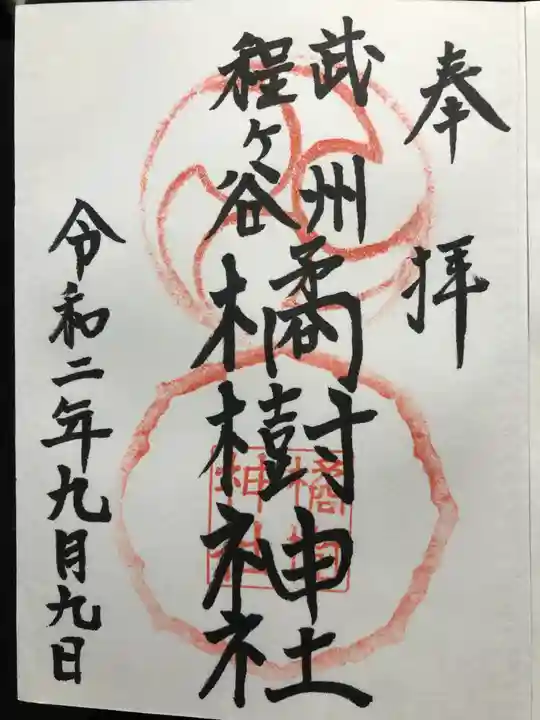 奉拝
武州
程ヶ谷
橘樹神社
橘樹
神社
令和二年九月九日